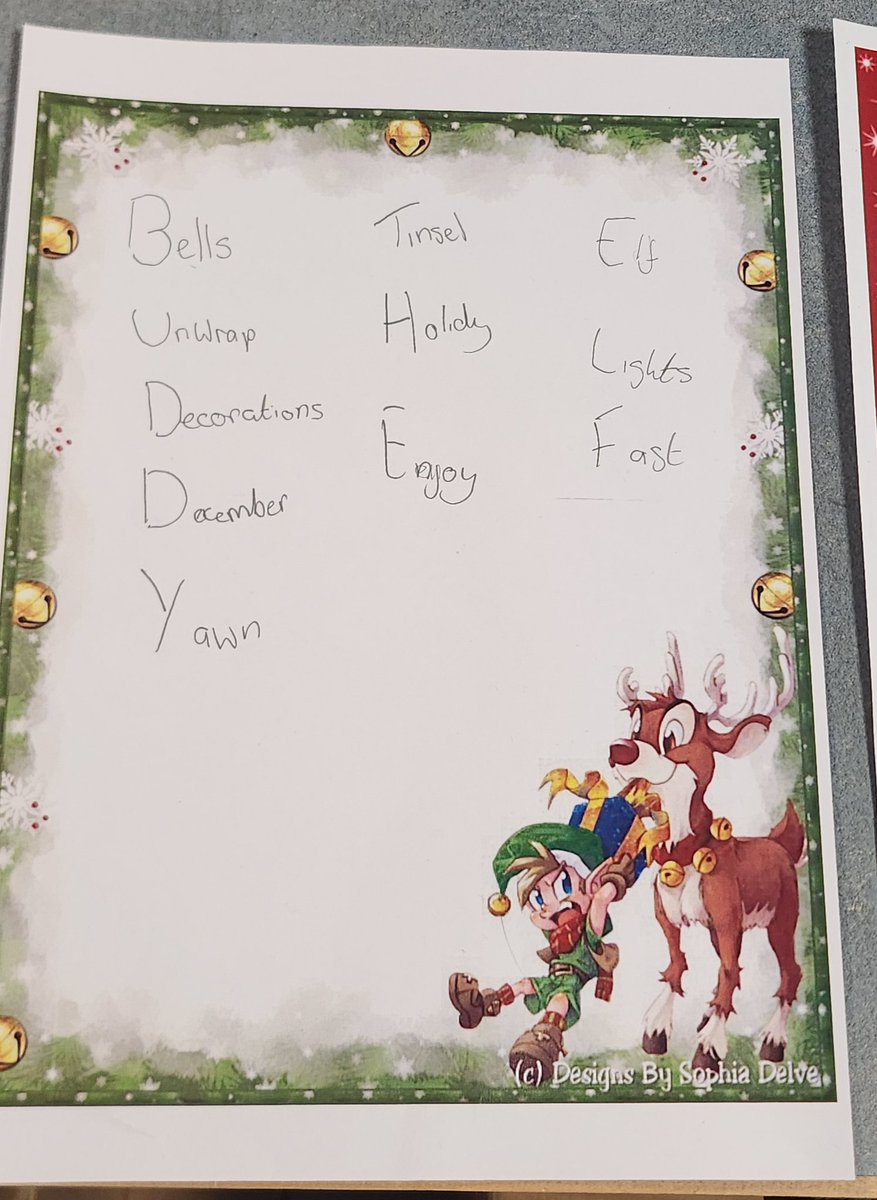 Bells
Unwrap
Decorations
December
Yawn
Tinsel
Holidy
Enjoy
Elf
Lights
Fast
(c) Designs By Sophia Delve